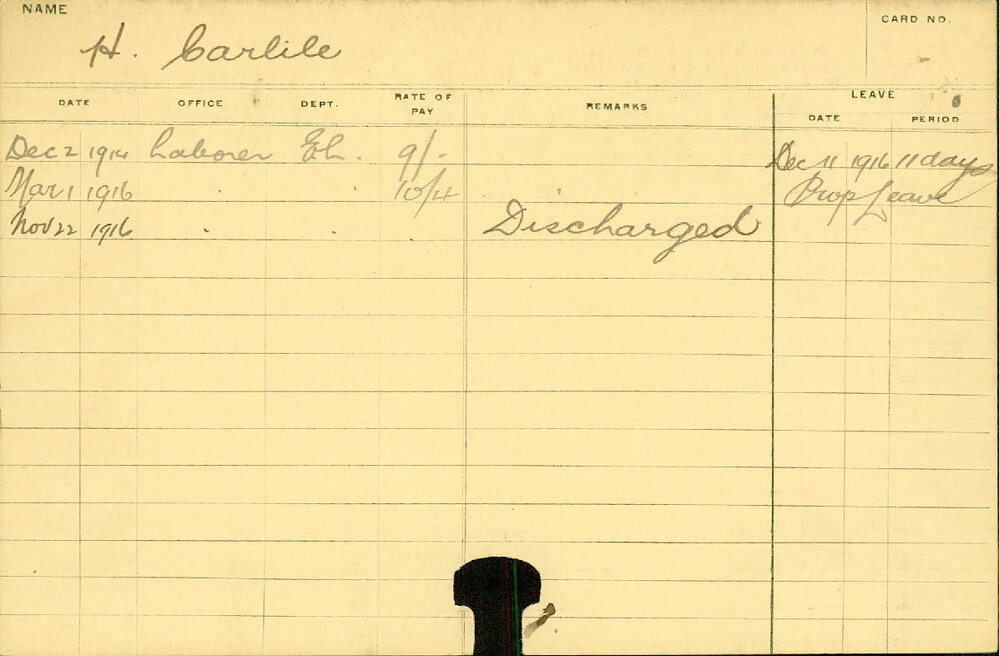 NAME
H. Carlile
CARD NO.
DATE OFFICE DEPT. RATE OF PAY REMARKS LEAVE
DATE PERIOD
Dec 2 1914 Laborer Eh. 9/- Dec 11 1916 11 days
Mar 1 1916 10/4 Prop Leave
Nov 22 1916 Discharged